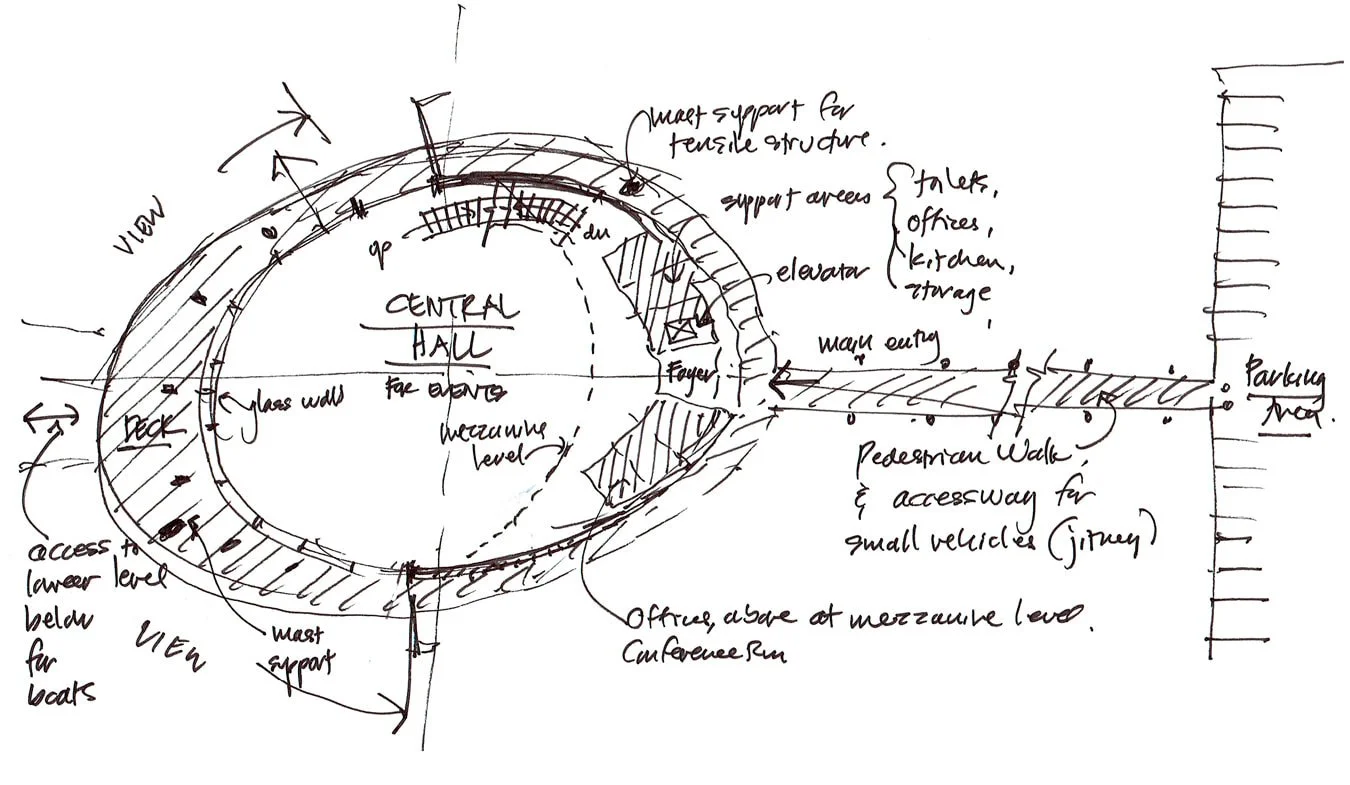 mast support for
tensile structure.
support areas
toilets,
offices,
kitchen,
storage
elevator
VIEW
up
dn
CENTRAL
HALL
FOR EVENTS
Foyer
main entry
Parking
Area.
glass wall
DECK
mezzanine
level
Pedestrian Walk
& accessway for
small vehicles (jitney)
access to
lower level
below
for
boats
VIEW
mast
support
Offices, above at mezzanine level.
Conference Rm